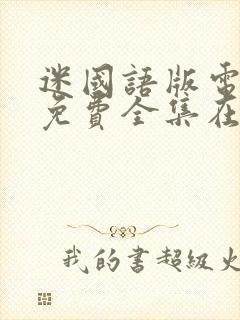 迷國語版電
免費全集在
我的書超級火